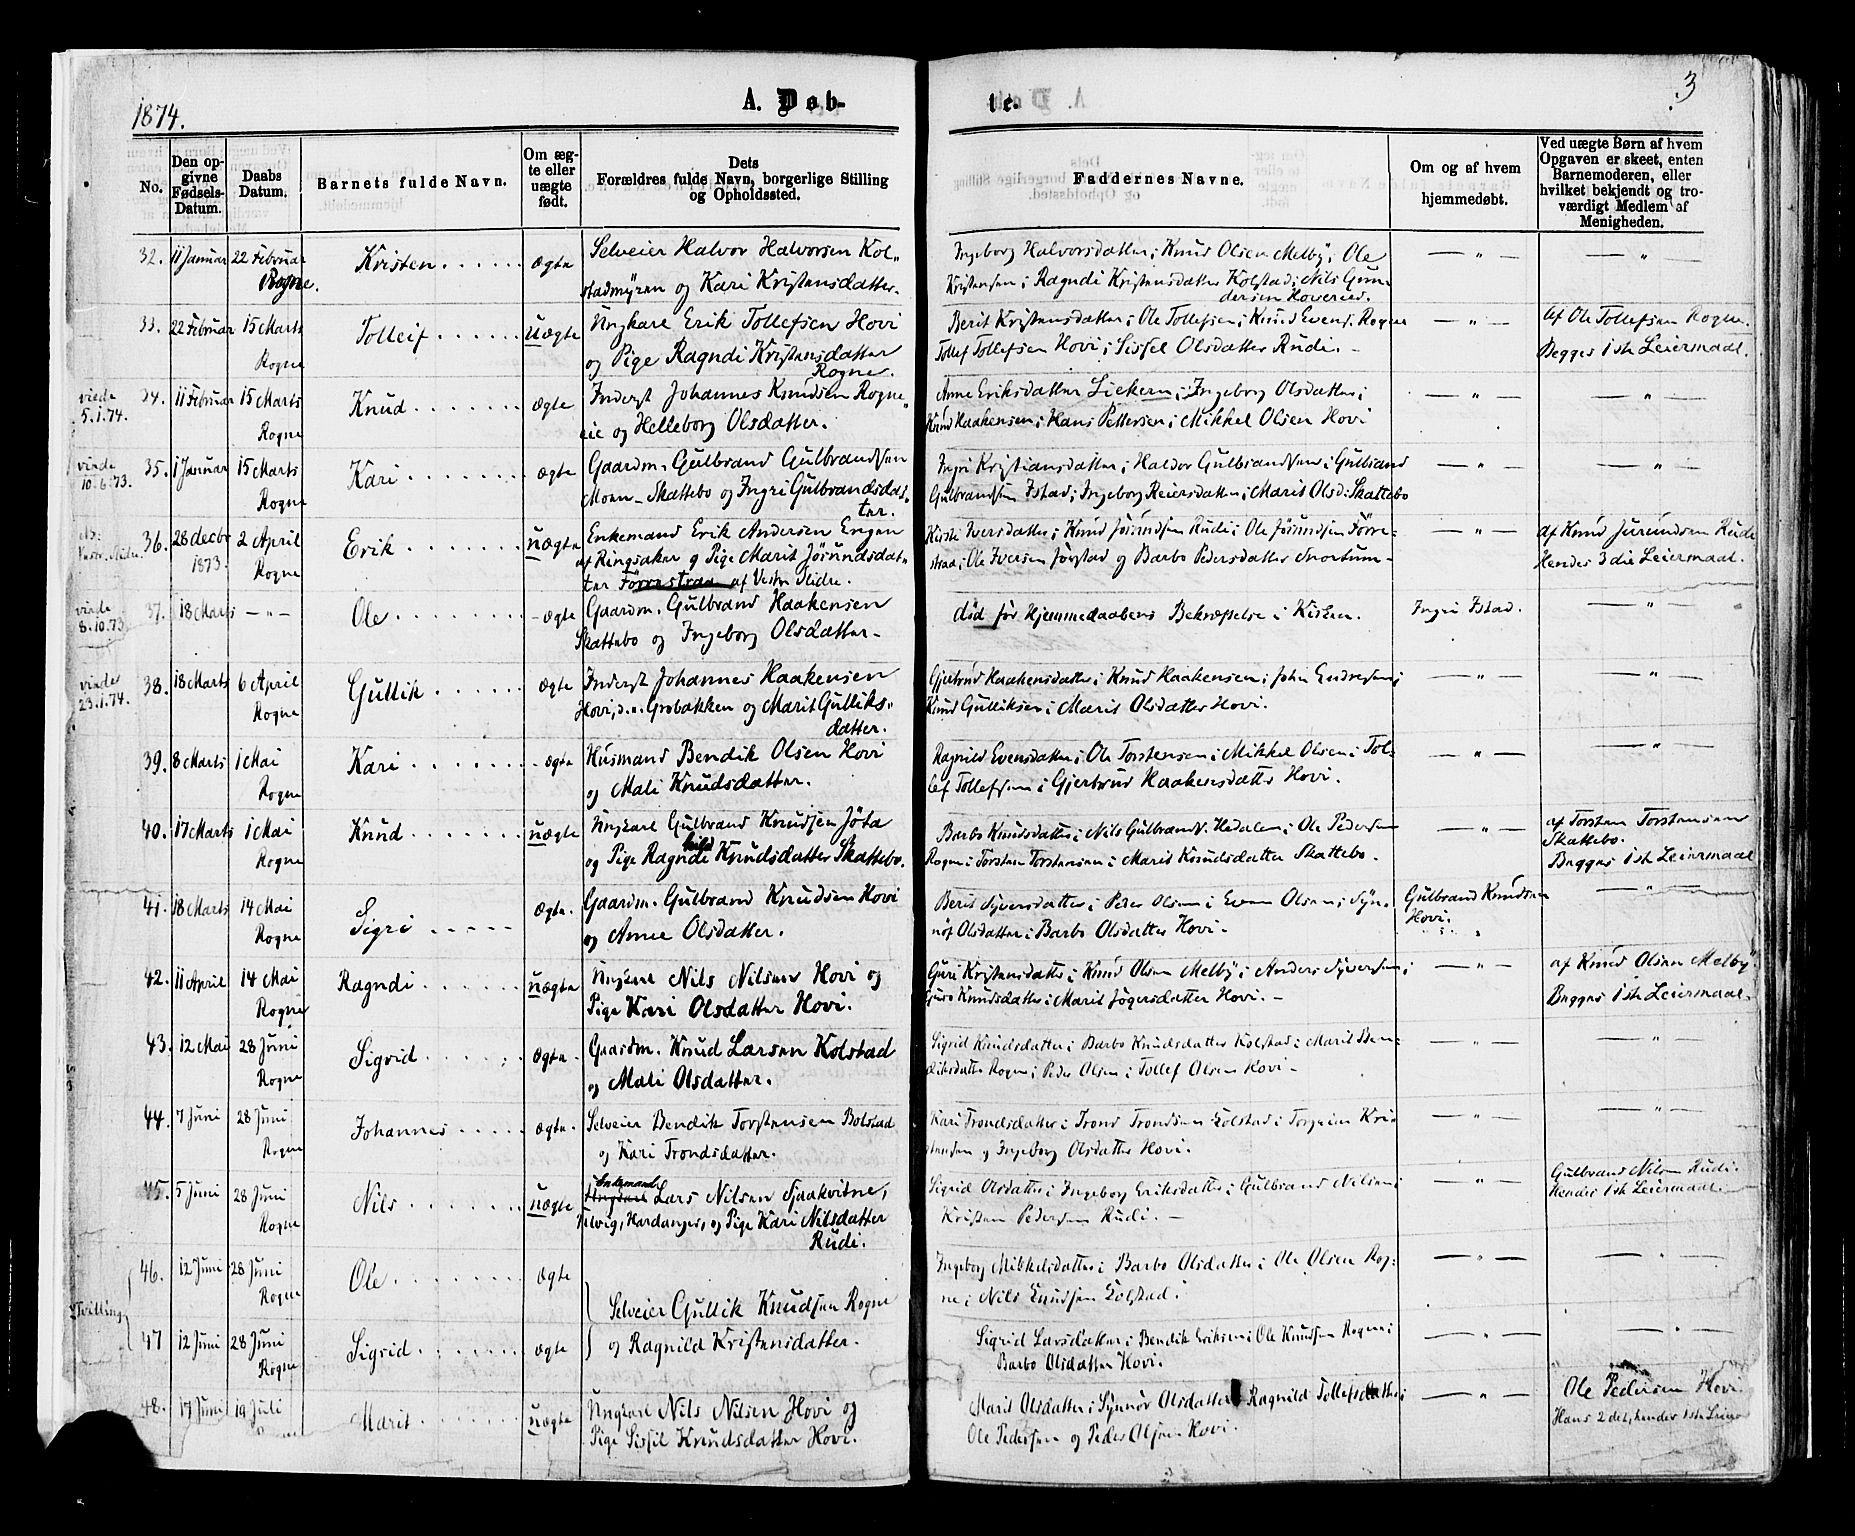 1874.
A. Døb-
te.
3
No.
Den op-
givne
Fødsels-
Datum.
Daabs
Datum.
Barnets fulde Navn.
Om æg-
te eller
uægte
født.
Dets
Forældres fulde Navn, borgerlige Stilling
og Opholdssted.
Faddernes Navne.
Om og af hvem
hjemmedøbt.
Ved uægte Børn af hvem
Opgaven er skeet, enten
Barnemoderen, eller
hvilket bekjendt og tro-
værdigt Medlem af
Menigheden.
32. 11 Januar 22 Februar Kristen ægte Selveier Halvor Halvorsen Kol-
Rogne. stadmyren og Kari Kristensdatter.
Ingeborg Halvorsdatter; Knud Olsen Melby; Ole — " — — " —
Kristensen; Ragndi Kristensdatter Kolstad; Nils Gun-
dersen Hoveried.
33. 22 Februar 15 Marts Tolleif uægte Ungkarl Erik Tollefsen Hovi
Rogne og Pige Ragndi Kristensdatter
Rogne.
Berit Kristensdatter; Ole Tollefsen; Knud Evens. Rogne — " — Af Ole Tollefsen Rogne.
Tollef Tollefsen Hovi; Sissel Olsdatter Rudi. Begges 1ste Leiermaal.
viede
5.1.74.
34. 11 Februar 15 Marts Knud ægte Inderst Johannes Knudsen Rogne-
Rogne eie og Helleborg Olsdatter.
Anne Eriksdatter; Ingeborg Olsdatter; — " — — " —
Knud Haakensen; Hans Pettersen; Mikkel Olsen Hovi
viede
10.6.73.
35. 1 Januar 15 Marts Kari ægte Gaardm. Gulbrand Gulbrandsen
Rogne Moen-Skattebo og Ingri Gulbrandsdat-
ter.
Ingri Kristiansdatter; Haldor Gulbrandsen; Gulbrand — " — — " —
Gulbrandsen Istad; Ingeborg Reiersdatter; Marit Olsd. Skattebo
Vestre Slidre.
36. 28 Decbr 2 April Erik uægte Enkemand Erik Andersen Engen
1873. Rogne af Ringsaker og Pige Marit Jørundsdat-
ter Førrestraa af Vestre Slidre.
Kirsti Iversdatter; Knud Jørundsen Rudi; Ole Jørundsen Førre- — " — af Knud Jurundsen Rudi
straa; Ole Iversen Jørstad og Barbo Pedersdatter Snortum Hendes 3die Leiermaal.
viede
8.10.73.
37. 18 Marts — " — Ole ægte Gaardm. Gulbrand Haakensen
Skattebo og Ingeborg Olsdatter.
død før Hjemmedaabens Bekræftelse i Kirken. Ingri Istad. — " —
viede
23.1.74.
38. 18 Marts 6 April Gullik ægte Inderst Johannes Haakensen
Rogne Hovi, Grobakken og Marit Gulliks-
datter.
Gjertrud Haakensdatter; Knud Haakensen; John Endresen; — " — — " —
Knud Gulliksen; Marit Olsdatter Hovi.
39. 8 Marts 1 Mai Kari ægte Husmand Bendik Olsen Hovi
Rogne og Mali Knudsdatter.
Ragnild Evensdatter; Ole Torstensen; Mikkel Olsen; Tol- — " — — " —
lef Tollefsen; Gjertrud Haakensdatter Hovi.
40. 17 Marts 1 Mai Knud uægte Ungkarl Gulbrand Knudsen Jøta
Rogne og Pige Ragnhild Knudsdatter Skattebo.
Barbo Knudsdatter; Nils Gulbrands. Hedalen; Ole Pedersen — " — af Torsten Torstensen
Rogne; Torsten Torstensen; Marit Knudsdatter Skattebo. Skattebo.
Begges 1ste Leiermaal
41. 18 Marts 14 Mai Sigri ægte. Gaardm. Gulbrand Knudsen Hovi
Rogne og Anne Olsdatter.
Berit Syversdatter; Peder Olsen; Even Olsen; Syn- Gulbrand Knudsen — " —
nøf Olsdatter; Barbo Olsdatter Hovi. Hovi.
42. 11 April 14 Mai Ragndi uægte Ungkarl Nils Nilsen Hovi og
Rogne Pige Kari Olsdatter Hovi.
Guri Kristensdatter; Knud Olsen Melby; Anders Syversen; — " — af Knud Olsen Melby.
Guro Knudsdatter; Marit Jøgersdatter Hovi. Begges 1ste Leiermaal.
43. 12 Mai 28 Juni Sigrid ægte. Gaardm. Knud Larsen Kolstad
Rogne og Mali Olsdatter.
Sigrid Knudsdatter; Barbo Knudsdatter Kolstad; Marit Ben- — " — — " —
diksdatter Rogne; Peder Olsen; Tollef Olsen Hovi.
44. 7 Juni 28 Juni Johannes ægte. Selveier Bendik Torstensen Bolstad
Rogne og Kari Trondsdatter.
Kari Trondsdatter; Trond Trondsen Kolstad; Torgrim Kri- — " — — " —
stensen og Ingeborg Olsdatter Hovi.
45. 5 Juni 28 Juni Nils uægte Enkemand Lars Nilsen Sjaakvitne,
Rogne Ulvig, Hardanger, og Pige Kari Nilsdatter
Rudi.
Sigrid Olsdatter; Ingeborg Eriksdatter; Gulbrand Nilsen; Gulbrand Nilsen Rudi.
Kristen Pedersen Rudi. Hendes 1ste Leiermaal
Tvilling
46. 12 Juni 28 Juni Ole ægte
Rogne Selveier Gullik Knudsen Rogne
Ingeborg Mikkelsdatter; Barbo Olsdatter; Ole Olsen Rog- — " — — " —
ne; Nils Knudsen Kolstad.
47 12 Juni 28 Juni Sigrid ægte og Ragnild Kristensdatter.
Rogne
Sigrid Larsdatter; Bendik Eriksen; Ole Knudsen Rogne; — " — — " —
Barbo Olsdatter Hovi.
48. 17 Juni 19 Juli Marit uægte Ungkarl Nils Nilsen Hovi og
Rogne Pige Sissil Knudsdatter Hovi.
Marit Olsdatter; Synnøv Olsdatter; Ragnild Tollefsdatter; — " — Ole Pedersen Hovi
Ole Pedersen og Peder Olsen Hovi. Hans 2det, hendes 1ste Leier